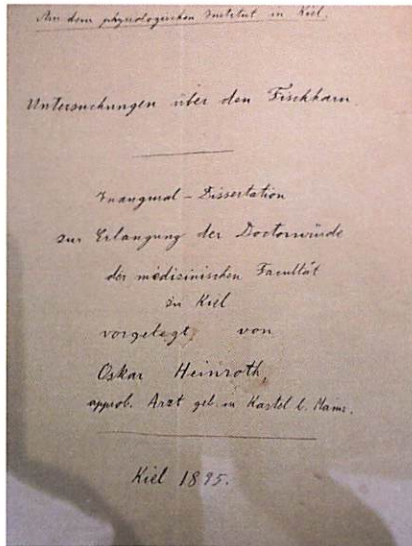 Aus dem physiologischen Institut in Kiel.
Untersuchungen über den Fischharn.
Inaugural-Dissertation
zur Erlangung der Doctorwürde
der medicinischen Facultät
zu Kiel
vorgelegt von
Oskar Heinroth,
approb. Arzt geb. in Kastel b. Mainz.
Kiel 1895.